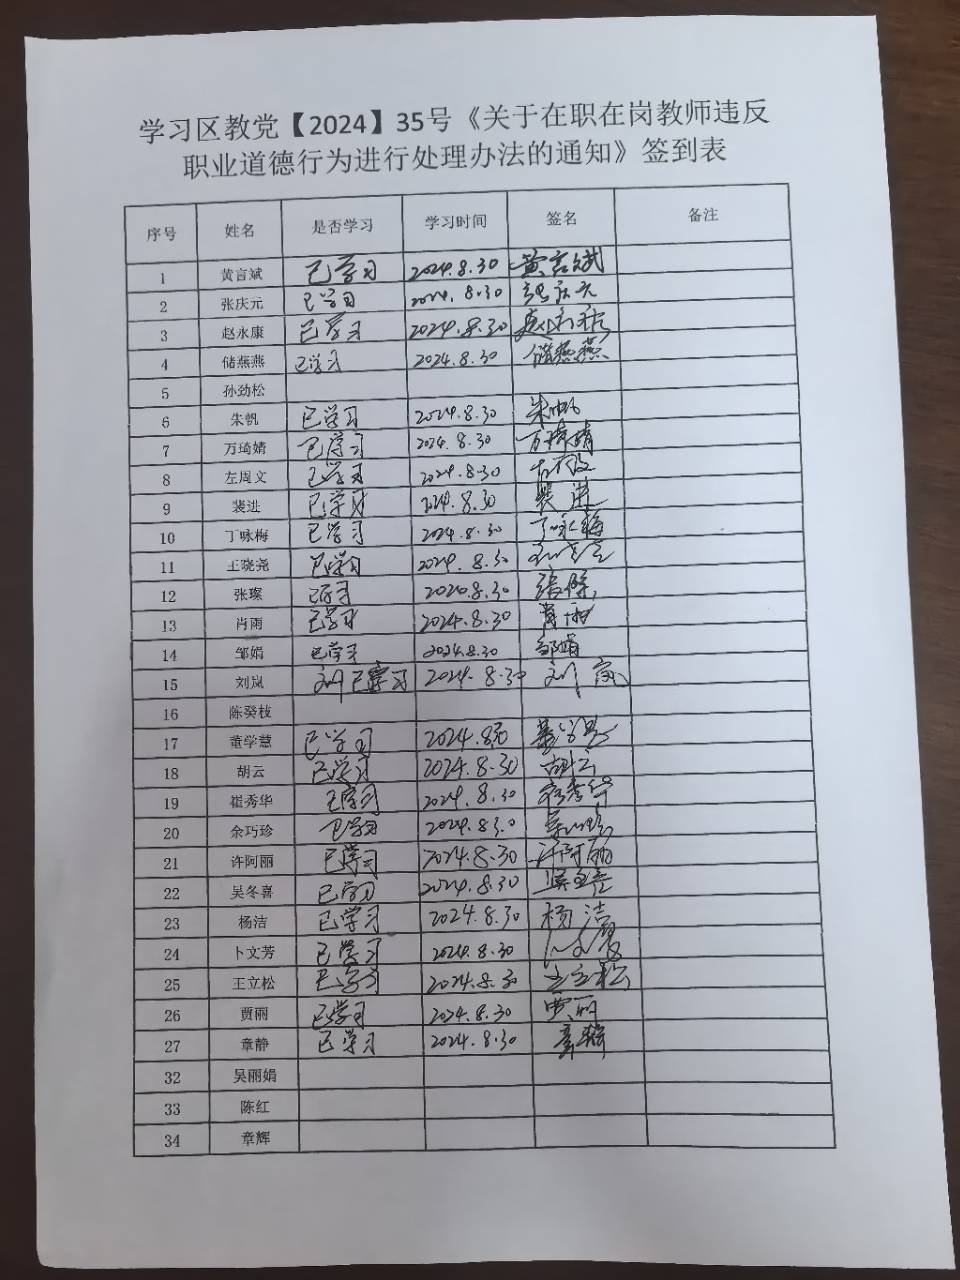 学习区教党【2024】35号《关于在职在岗教师违反
职业道德行为进行处理办法的通知》签到表
序号 姓名 是否学习 学习时间 签名 备注
1 黄言斌 已学习 2024.8.30 黄言斌
2 张庆元 已学习 2024.8.30 张庆元
3 赵永康 已学习 2024.8.30 赵永康
4 储燕燕 已学习 2024.8.30 储燕燕
5 孙劲松
6 朱帆 已学习 2024.8.30 朱帆
7 万琦婧 已学习 2024.8.30 万琦婧
8 左周文 已学习 2024.8.30
9 裴进 已学习 2024.8.30 裴进
10 丁咏梅 已学习 2024.8.30 丁咏梅
11 王晓尧 已学习 2024.8.30
12 张璨 已学习 2020.8.30
13 肖雨 已学习 2024.8.30 肖雨
14 邹娟 已学习 2024.8.30 邹娟
15 刘岚 刘已学习 2024.8.30 刘岚
16 陈癸枝
17 董学慧 已学习 2024.8.30 董学慧
18 胡云 已学习 2024.8.30 胡云
19 崔秀华 已学习 2024.8.30 崔秀华
20 余巧珍 已学习 2024.8.30
21 许阿丽 已学习 2024.8.30 许阿丽
22 吴冬喜 已学习 2024.8.30 吴冬喜
23 杨洁 已学习 2024.8.30 杨洁
24 卜文芳 已学习 2024.8.30
25 王立松 已学习 2024.8.30 王立松
26 贾丽 已学习 2024.8.30 贾丽
27 章静 已学习 2024.8.30 章静
32 吴丽娟
33 陈红
34 章辉